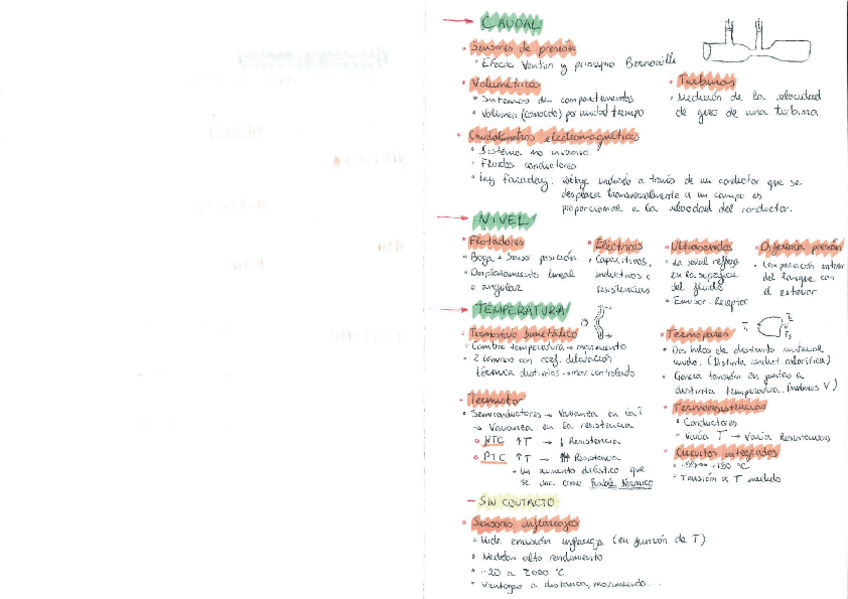 → CAUDAL
• Sensores de presión
• Efecto Venturi y principio Bernouilli
• Volumétricos
• Sistemas de compartimentos
• Volumen (conocido) por unidad tiempo
• Turbinas
• Medición de la velocidad
de giro de una turbina
• Caudalímetros electromagnéticos
• Sistema no invasivo
• Fluidos conductores
• Ley Faraday: Voltaje inducido a través de un conductor que se
desplaza transversalmente a un campo es
proporcional a la velocidad del conductor.
→ NIVEL
• Flotadores
• Boya + Sensor posición
• Desplazamiento lineal
o angular
• Eléctricos
• Capacitivos,
inductivos o
resistencias
• Ultrasonidos
• La señal refleja
en la superficie
del fluido
• Emisor-Receptor
• Diferencia presión
• Comparación interior
del tanque con
el exterior
→ TEMPERATURA
• Termostato bimetálico
• Cambio temperatura → movimiento
• 2 láminas con coef. dilatación
térmica distintos → mov controlado
• Termopares
• Dos hilos de distinto material
unido. (Distinta conduct. calorífica)
• Genera tensión en juntas a
distinta temperatura. (medimos V)
• Termistor
• Semiconductores → Varianza en la T
→ Varianza en la resistencia
• NTC ↑T → ↓ Resistencia
• PTC ↑T → ⇈ Resistencia
• Un aumento drástico que
se usa como fusible térmico
• Termorresistencias
• Conductores
• Varía T → Varía Resistencias
• Circuitos integrados
• -55 → +150 °C
• Tensión a T medida
– SIN CONTACTO
• Sensores infrarrojos
• Mide emisión infrarroja (en función de T)
• Medidas alto rendimiento
• -20 a 2000 °C
• Ventajas a distancia, movimiento....